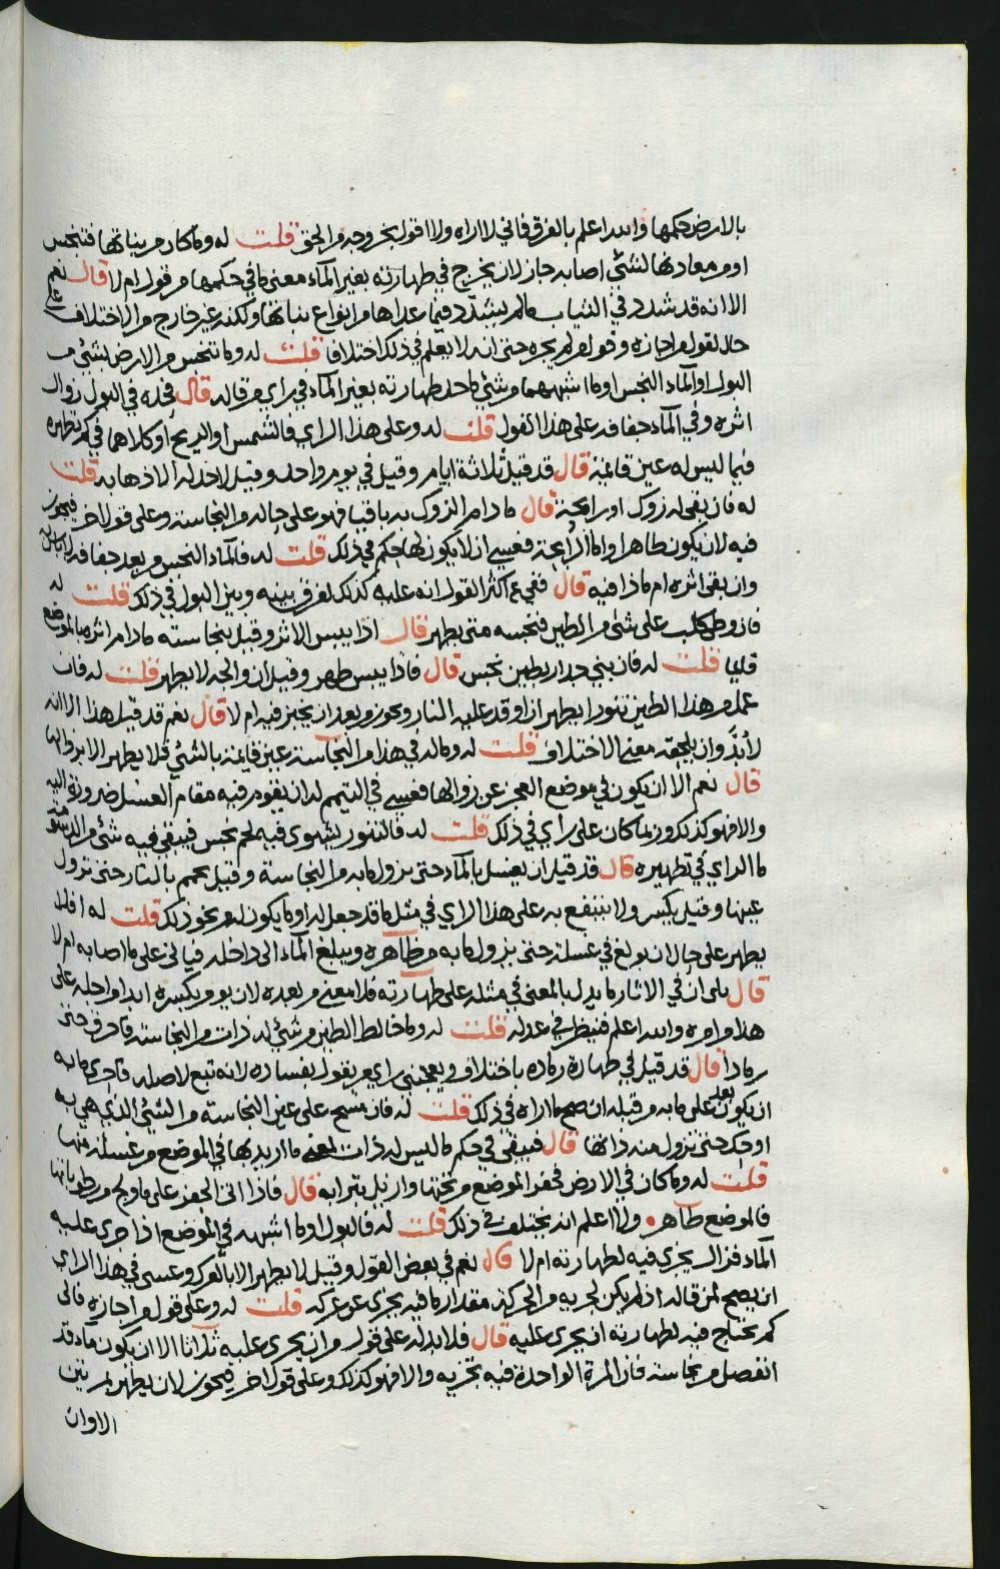 بالارض حكمها والله اعلم بالفرق فاني لا اراه ولا اقول بخروجه من الحق قلت له وما كان من نباتها فتنجس
او من معادنها لشئ اصابه جاز لان يخرج في طهارته بغير الماء معنى ما في حكمها من قول ام لا قال نعم
الا انه قد شدد في الثياب ما لم يشدد فيما عداها من انواع نباتها ولكنه غير خارج من الاختلاف على
حال لقول من اجازه وقول من لم يجزه حتى انه لا يعلم في ذلك اختلافا قلت له وما تنجس من الارض بشئ من
البول او الماء النجس او ما اشبههما من شئ ما حد طهارته بغير الماء في راي من قاله قال فحده في البول زوال
اثره وفي الماء جفافه على هذا القول قلت له وعلى هذا الراي فالشمس او الريح او كلاهما في كم تطهره
فيما ليس له عين قائمة قال قد قيل ثلاثة ايام وقيل في يوم واحد وقيل لا حد له الا ذهابه قلت
له فان بقي له زوك او رائحة قال ما دام الزوك به باقيا فهو على حاله من النجاسة وعلى قول اخر فيجوز
فيه لان يكون طاهرا واما الرائحة فعسى ان لا يكون لها حكم في ذلك قلت له فالماء النجس من بعد جفافه لا باس به
وان بقي اثره ام ماذا فيه قال ففي اكثر القول انه عليه كذلك لفرق بينه وبين البول في ذلك قلت له
فان وطئ كلب على شئ من الطين فنجسه متى يطهر قال اذا يبس الاثر وقيل بنجاسته ما دام اثره بالموضع
قائما قلت له فان بني جدار بطين نجس قال فاذا يبس طهر وقيل ان والجه لا يطهر قلت له فان
عمل من هذا الطين تنورا يطهر ان اوقد عليه النار ويجوز من بعد ان يخبز فيه ام لا قال نعم قد قيل هذا الا انه
لا بد وان يلحقه معنى الاختلاف قلت له وما له في هذا من النجاسة عين قائمة بالشئ فلا يطهر الا بزوالها
قال نعم الا ان يكون في موضع العجز عن زوالها فعسى في التيمم له ان يقوم فيه مقام الغسل ضرورة اليه
والا فهو كذلك وربما كان على راي في ذلك قلت له فالتنور يشوى فيه لحم نجس فيبقى فيه شئ من الدسومة
ما الراي في تطهيره قال قد قيل ان يغسل بالماء حتى يزول ما به من النجاسة وقيل يحمم بالنار حتى تزول
عينها وقيل يكسر ولا ينتفع به على هذا الراي في مثل ما قد جعل له او ما يكون له من نحو ذلك قلت له افلا
يطهر على حال ان بولغ في غسله حتى يزول ما به من ظاهره ويبلغ الماء الى داخله فياتي على ما اصابه ام لا
قال بلى ان في الاثار ما يدل بالمعنى في مثله على طهارته فلا معنى من بعده لان يومر بكسره ابدا من اجله على
هذا من امره والله اعلم فينظر في عدله قلت له وما خالط الطين من شئ له ذات من النجاسة فاحرق حتى
رمادا قال قد قيل في طهارة رماده باختلاف ويعجبني راي من يقول بفساده لانه تبع لاصله فاحرى ما به
ان يكون بعد على ما به من قبله ان صح ما اراه في ذلك قلت له فان مسح على عين النجاسة من الشئ الذي هي به
او حك حتى تزول منه ذاتها قال فيبقى في حكم ما ليس له ذات لمعنى ما اريد بها في الموضع من غسله منها
قلت له وما كان في الارض فحفر الموضع من تحتها وازيل بترابه قال فاذا اتى الحفر على ما ولج من رطوباتها
فالموضع طاهر ولا اعلم انه يختلف في ذلك قلت له فالبول او ما اشبهه في الموضع اذا جرى عليه
الماء فنزل يجزى فيه لطهارته ام لا قال نعم في بعض القول وقيل لا يطهر الا بالعرك وعسى في هذا الراي
ان يصح لمن قاله اذا لم يكن لجريه من الحركة مقدار ما فيه يجزى عن عركه قلت له وعلى قول من اجازه فالى
كم يحتاج فيه لطهارته ان يجرى عليه قال فلا بد له على قول من ان يجرى عليه ثلاثا الا ان يكون ماء قد
انفصل من نجاسة فان المرة الواحدة فيه تجزيه والا فهو كذلك وعلى قول اخر فيجوز لان يطهر بمرتين
الا وان